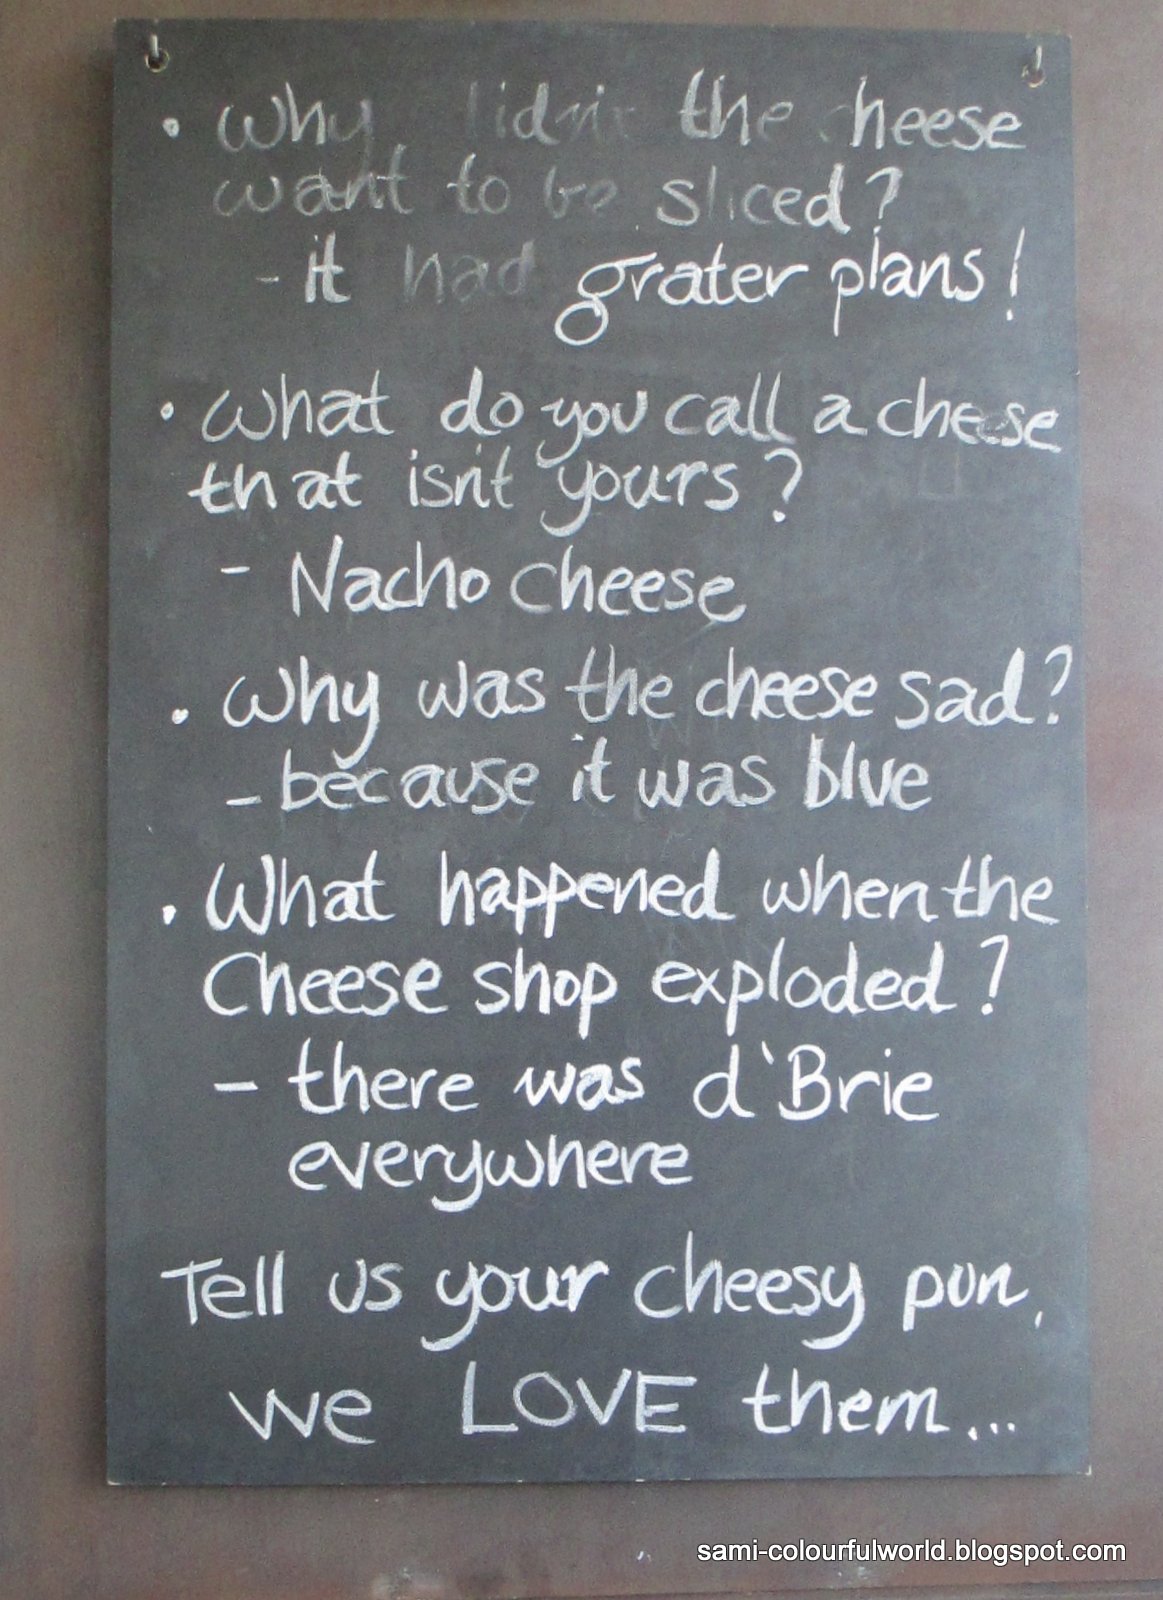 • Why didn't the cheese
want to be sliced?
- it had grater plans!
• What do you call a cheese
that isn't yours?
- Nacho cheese
• Why was the cheese sad?
- because it was blue
• What happened when the
Cheese shop exploded?
- there was d'Brie
everywhere
Tell us your cheesy pun,
we LOVE them...
sami-colourfulworld.blogspot.com